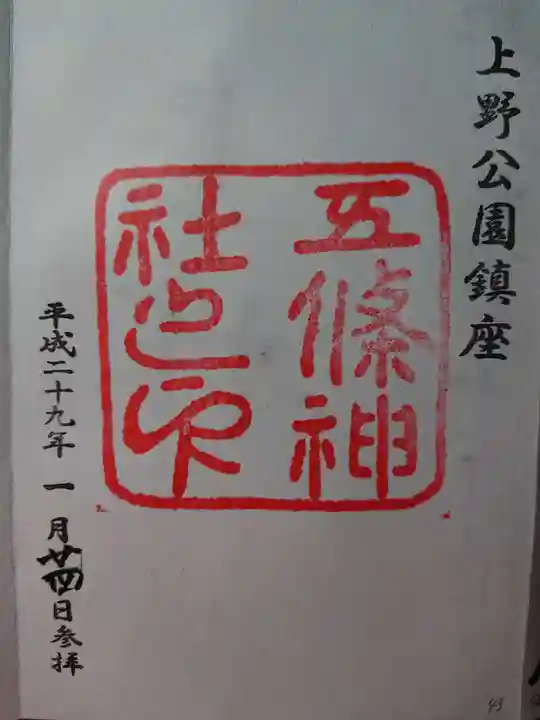 上野公園鎮座
五條神
社之印
平成二十九年一月廿四日参拝
43